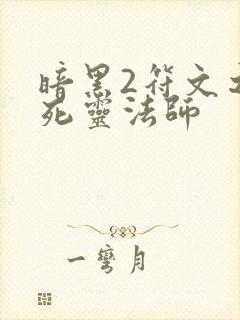 暗黑2符文之
死靈法師
一彎月